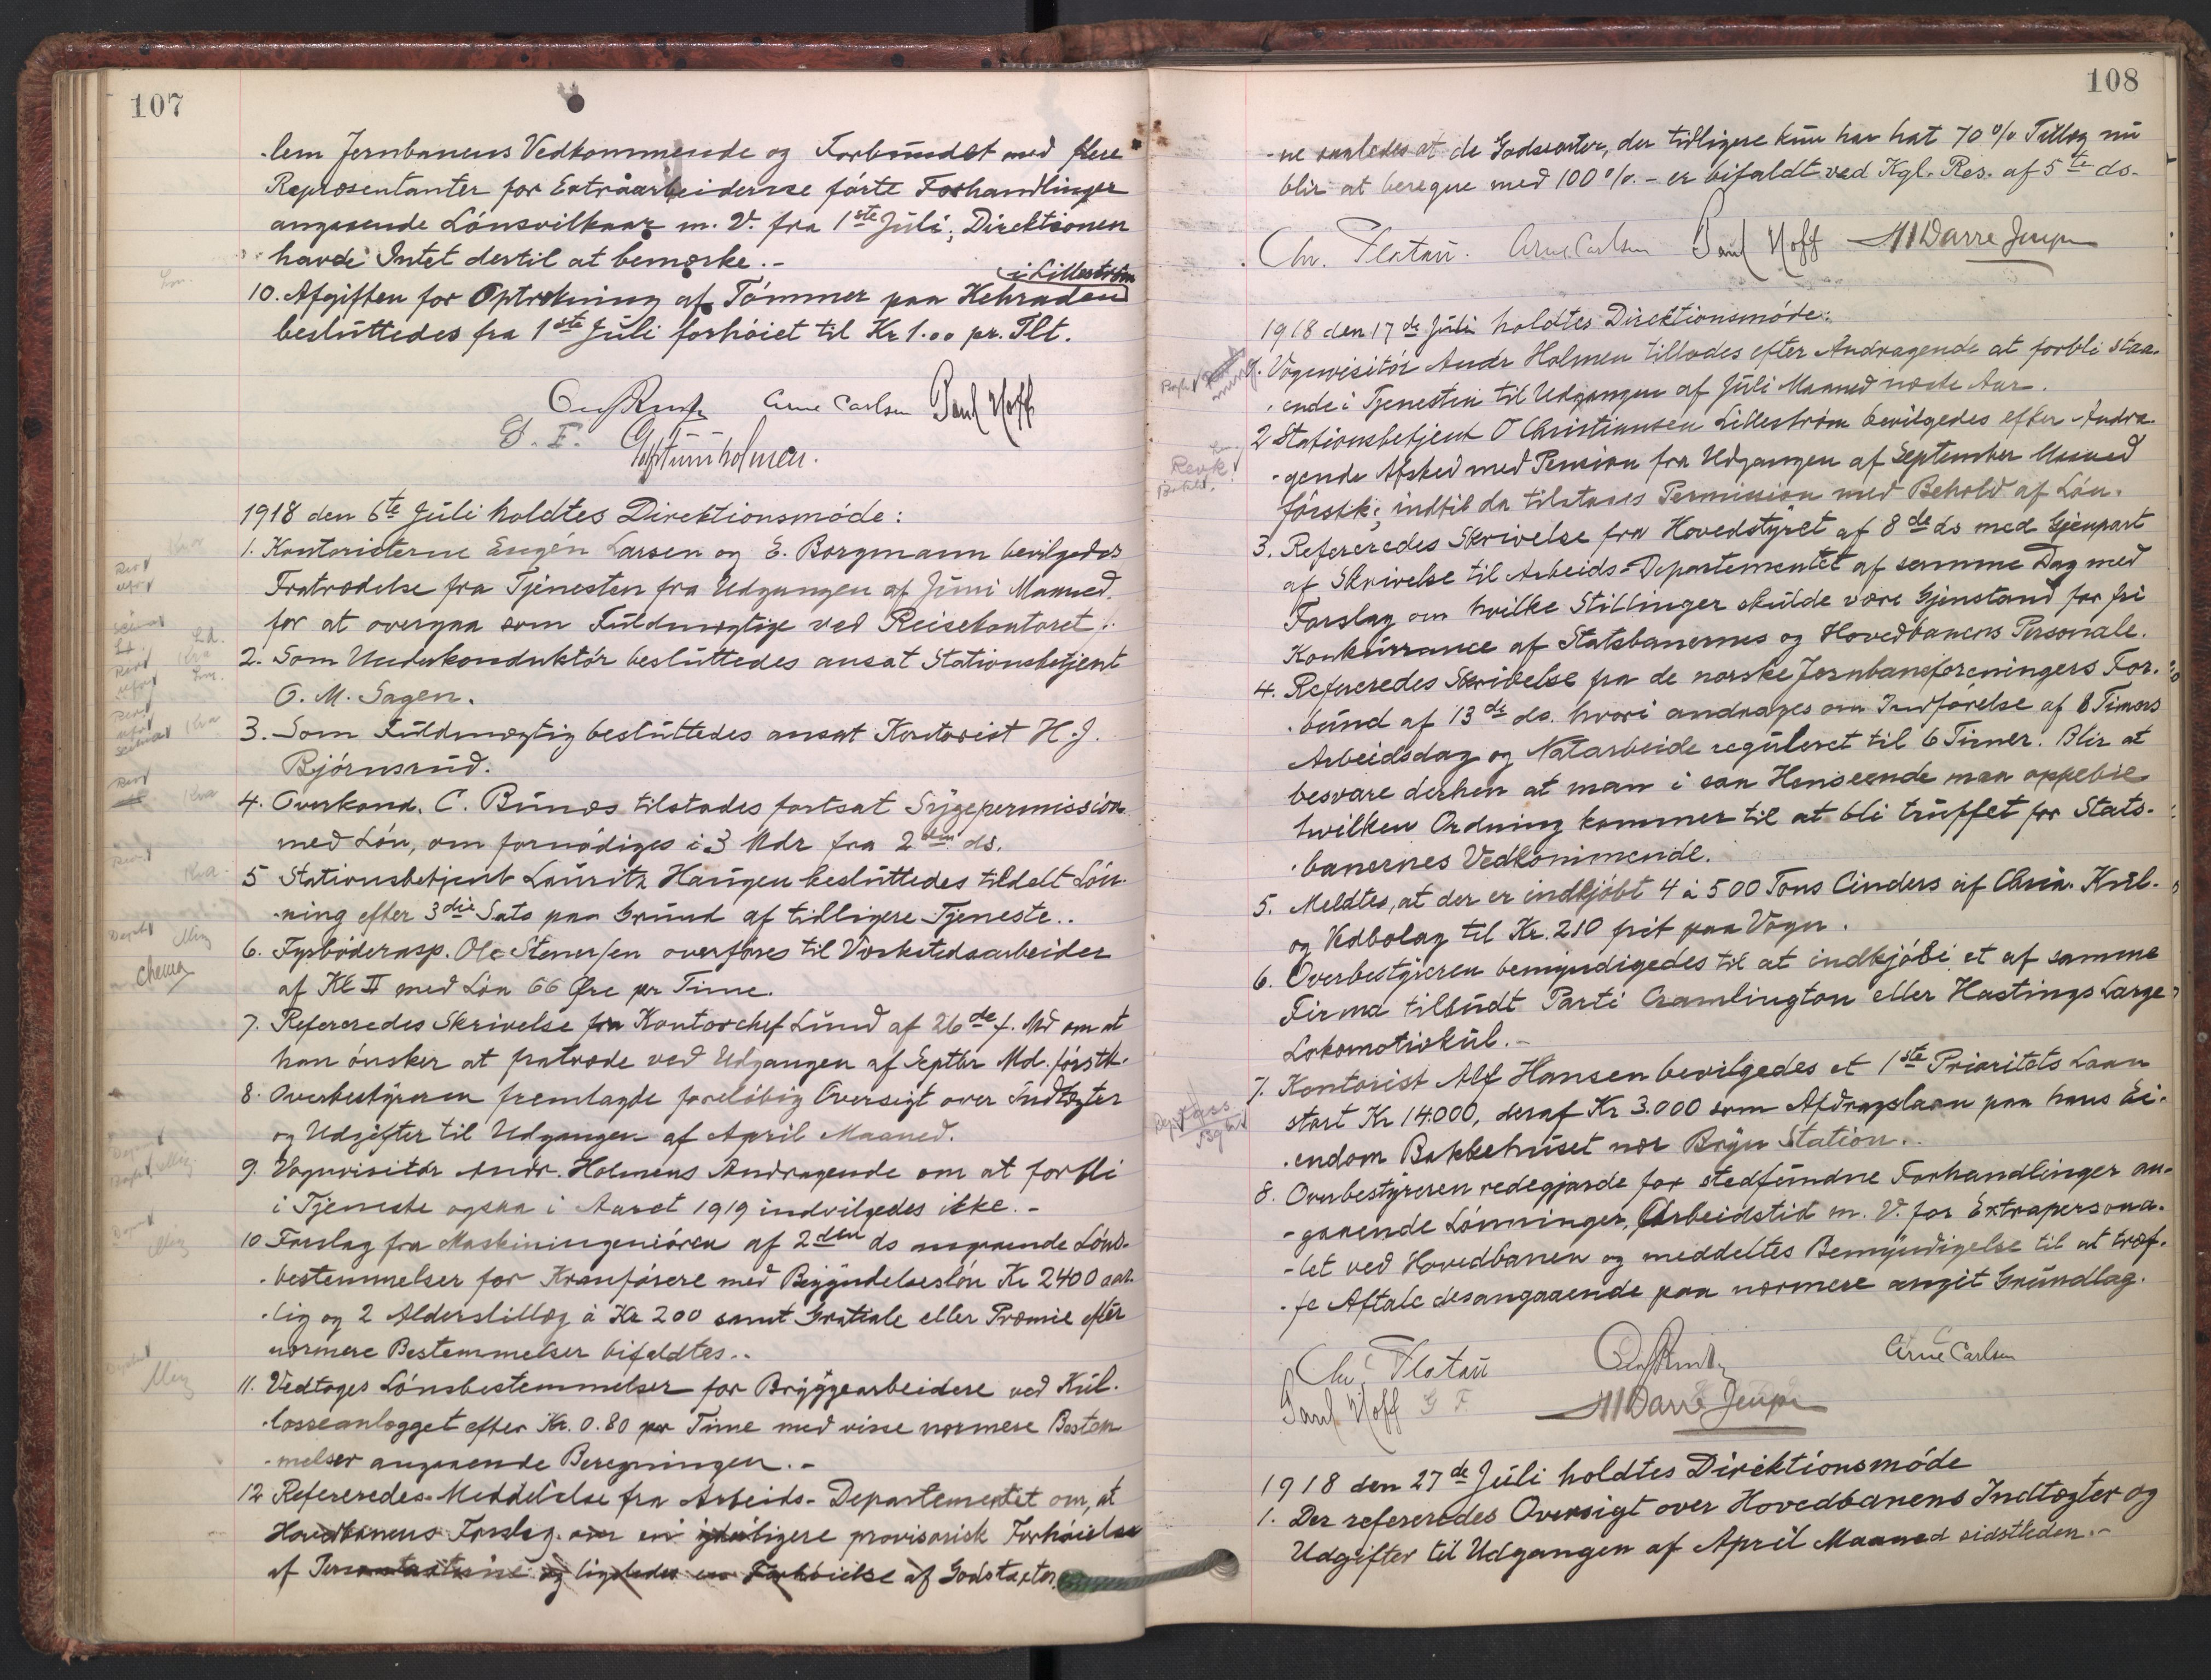 107
-lem Jernbanens Vedkommende og Forbundet med flere
Repræsentanter for Extraarbeiderne førte Forhandlinger
angaaende Lønsvilkaar m. V. fra 1ste Juli; Direktionen
havde Intet dertil at bemærke.-
i Lillestrøm
10. Afgiften for Optrækning af Tømmer paa Kehraden
besluttedes fra 1ste Juli forhøiet til Kr 1.00 pr. Tlt.
Arne Carlsen Paul Hoff
G. F.
1918 den 6te Juli holdtes Direktionsmøde:
1. Kontoristerne Eugén Larsen og E. Borgmann bevilgedes
Fratrædelse fra Tjenesten fra Udgangen af Juni Maaned
for at overgaa som Fuldmægtige ved Reisekontoret.
2. Som Underkonduktør besluttedes ansat Stationsbetjent
O. M. Sagen.
3. Som Fuldmægtig besluttedes ansat Kontorist H. J.
Bjørnsrud.
4. Overkond. C. Bunæs tilstodes fortsat Sygepermission
med Løn, om fornødiges i 3 Mdr fra 2den ds.
5 Stationsbetjent Lauritz Haugen besluttedes tildelt Løn-
-ning efter 3die Sats paa Grund af tidligere Tjeneste..
6. Fyrbøderasp. Ole Stenersen overføres til Værkstedsarbeider
af Kl II med Løn 66 Øre pr Time.
7. Refereredes Skrivelse fra Kontorchef Lund af 26de f. Md om at
han ønsker at fratræde ved Udgangen af Septbr Md. førstk.
8. Overbestyreren fremlagde foreløbig Oversigt over Indtægter
og Udgifter til Udgangen af April Maaned.
9. Vognvisitør Andr. Holmens Andragende om at forbli
i Tjeneste ogsaa i Aaret 1919 indvilgedes ikke.-
10 Forslag fra Maskiningeniøren af 2den ds angaaende Løns-
-bestemmelser for Kranførere med Begyndelsesløn Kr 2400 aar-
-lig og 2 Alderstillæg à Kr 200 samt Gratiale eller Præmie efter
nærmere Bestemmelser bifaldtes..
11. Vedtoges Lønsbestemmelser for Bryggearbeidere ved Kul-
-losseanlægget efter Kr. 0.80 per Time med visse nærmere Bestem
-melser angaaende Beregningen.-
12 Refereredes Meddelelse fra Arbeids-Departementet om, at
Hovedbanens Forslag om en yderligere provisorisk Forhøielse
af Persontaxterne og ligeledes en Forhøielse af Godstaxter
108
-ne saaledes at de Godstaxter, der tidligere kun har hat 70 % Tillæg nu
blir at beregne med 100 %.- er bifaldt ved Kgl. Res. af 5te ds.
Chr. Platou. Arne Carlsen Paul Hoff
1918 den 17de Juli holdtes Direktionsmøde:
1. Vognvisitør Andr Holmen tillodes efter Andragende at forbli staa-
-ende i Tjenesten til Udgangen af Juli Maaned næste Aar.
2 Stationsbetjent O Christiansen Lillestrøm bevilgedes efter Andra-
-gende Afsked med Pension fra Udgangen af September Maaned
førstk; indtil da tilstaaes Permission med Behold af Løn.
3. Refereredes Skrivelse fra Hovedstyret af 8de ds med Gjenpart
af Skrivelse til Arbeids-Departementet af samme Dag med
Forslag om hvilke Stillinger skulde være Gjenstand for fri
Konkurrance af Statsbanernes og Hovedbanens Personale.
4. Refereredes Skrivelse fra de norske Jernbaneforeningers For-
-bund af 13de ds. hvori andrages om Indførelse af 8 Timers
Arbeidsdag og Natarbeide reguleret til 6 Timer. Blir at
besvare derhen at man i saa Henseende maa oppebie
hvilken Ordning kommer til at bli truffet for Stats-
-banernes Vedkommende.
5. Meldtes, at der er indkjøbt 4 à 500 Tons Cinders af Chria. Kul-
og Vedbolag til Kr. 210 frit paa Vogn.
6. Overbestyreren bemyndigedes til at indkjøbe et af samme
Firma tilbudt Parti Cramlington eller Hastings Large
Lokomotivkul.-
7. Kontorist Alf Hansen bevilgedes et 1ste Prioritets Laan
stort Kr 14.000, deraf Kr 3.000 som Afdragslaan paa hans Ei-
-endom Bakkehuset nær Bryn Station..
8. Overbestyreren redegjorde for stedfundne Forhandlinger an-
-gaaende Lønninger, Arbeidstid m. V. for Extrapersona-
-let ved Hovedbanen og meddeltes Bemyndigelse til at træf-
-fe Aftale desangaaende paa nærmere angit Grundlag.
Chr. Platou Arne Carlsen
Paul Hoff G F.
1918 den 27de Juli holdtes Direktionsmøde
1. Der refereredes Oversigt over Hovedbanens Indtægter og
Udgifter til Udgangen af April Maaned sidstleden.-